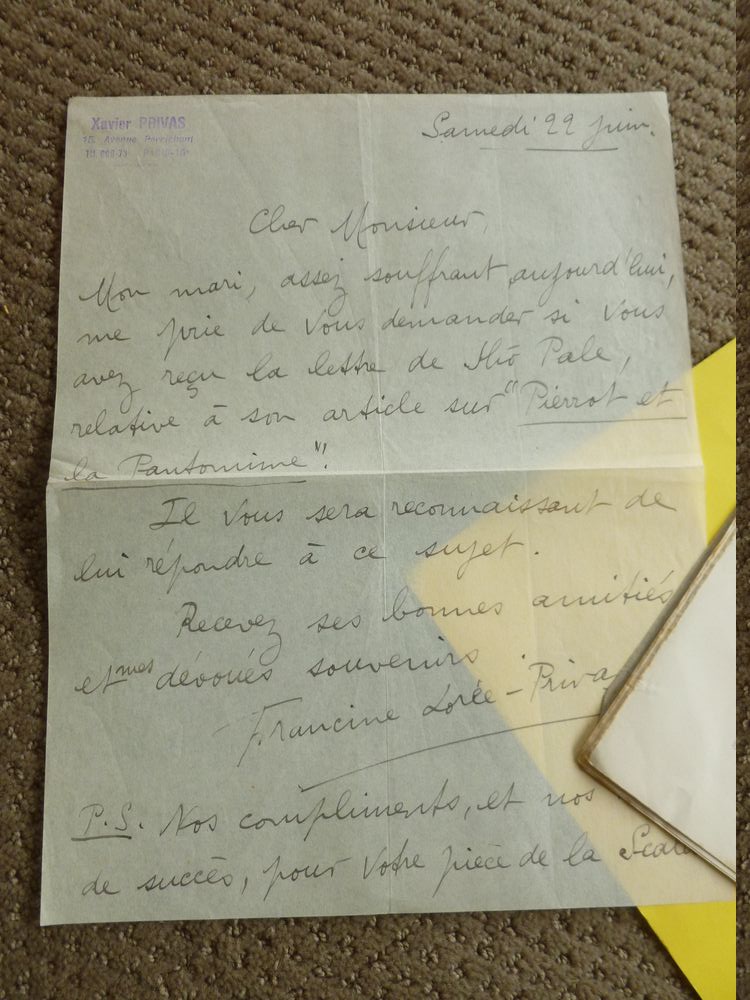 Xavier PRIVAS
15, Avenue
Samedi 22 juin.
Cher Monsieur,
Mon mari, assez souffrant aujourd'hui,
me prie de vous demander si vous
avez reçu la lettre de Pale,
relative à son article sur "Pierrot et
la Pantomime".
Il vous sera reconnaissant de
lui répondre à ce sujet.
Recevez ses bonnes amitiés
et mes dévoués souvenirs.
Francine Lorée-Privas
P.S. Nos compliments, et nos
de succès, pour votre pièce de la Scala